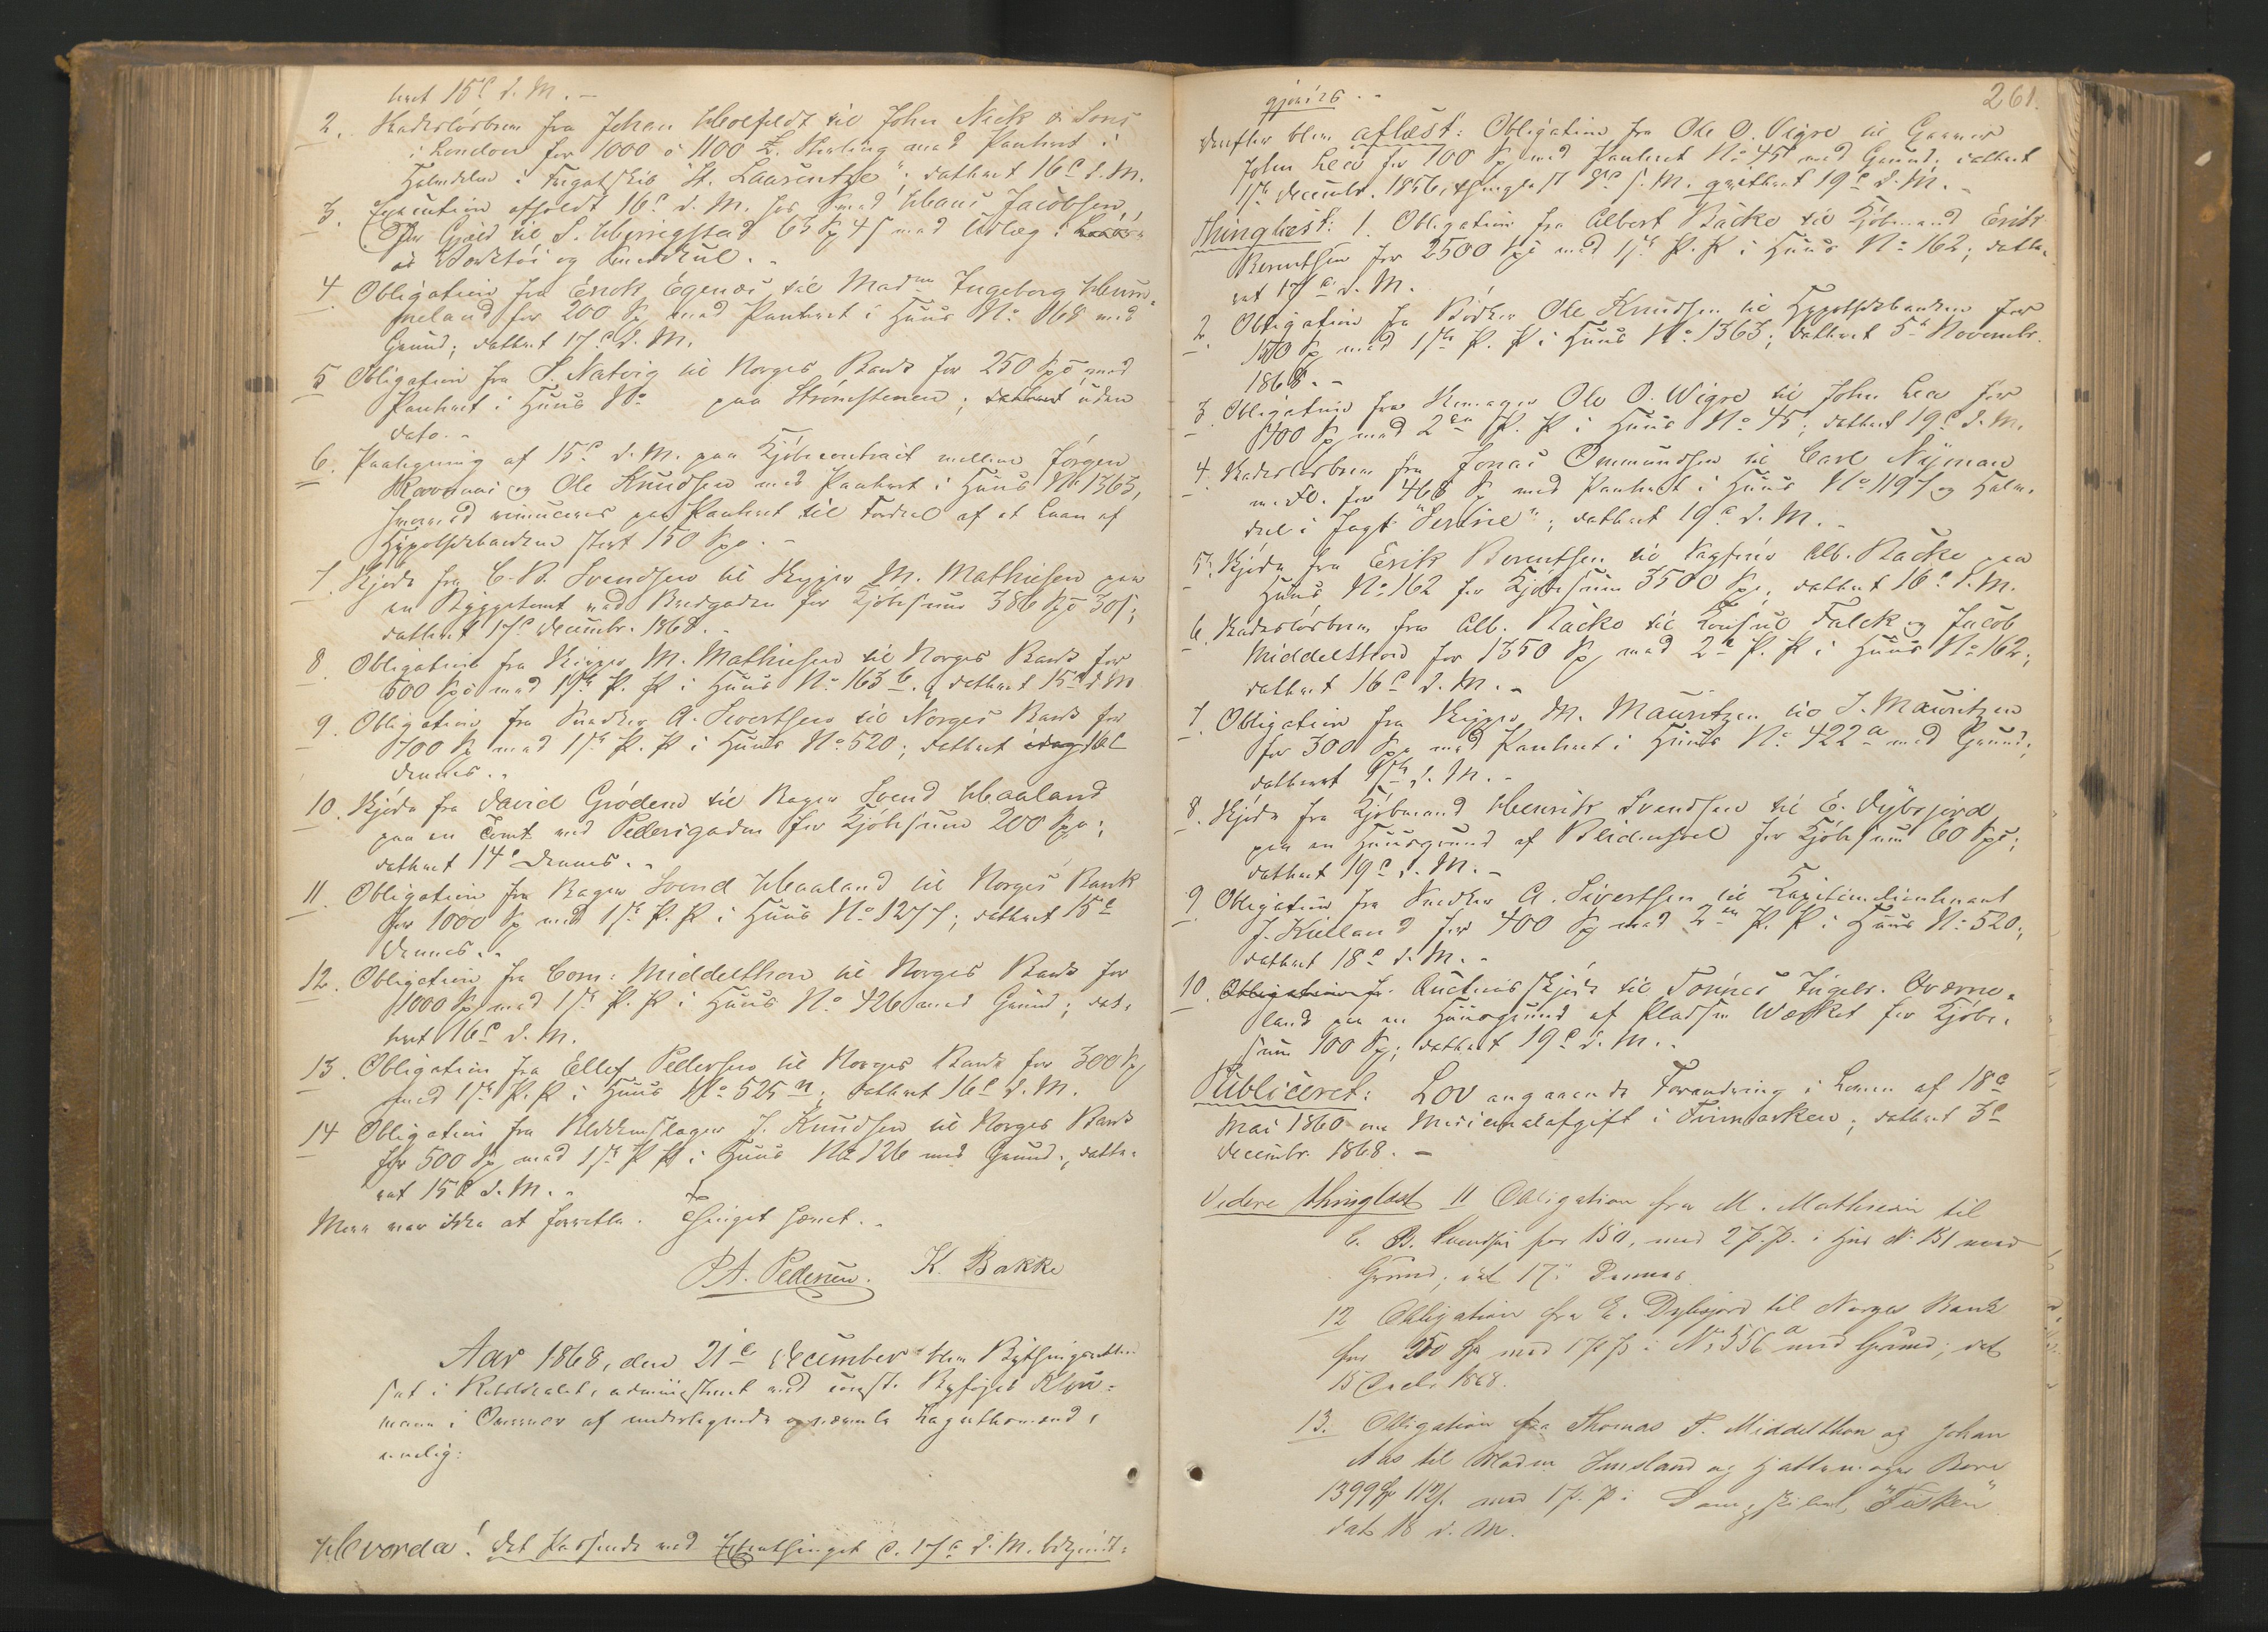 teret 15de d. M. –
2. Skadesløsbrev fra Johan Hoefeldt til John Nick & Sons
i London for 1000 à 1100 £ Sterling med Panteret i
Halvdelen i Fregatskib "St. Laurentze"; datteret 16de d. M.
3. Execution afholdt 16de d. M. hos Smed Claus Jacobsen
for Gjæld til S. 63 Sp 4 s med Udlæg i
og
4. Obligation fra Erick Egenæs til Madme Ingeborg Hum-
meland for 200 Sp med Panteret i Huus No 868 med
Grund; datteret 17de d. M.
5 Obligation fra S. Natvig til Norges Bank for 250 Spd med
Panteret i Huus No paa Strømstenen; datteret uden
dato. –
6. Paategning af 15de d. M. paa Kjøbecontract mellem Jørgen
Ravnaas og Ole Knudsen med Panteret i Huus No 1363,
hvorved renunceres paa Panteret til Fordeel af et Laan af
Hypothekbanken stort 150 Spd. –
7. Skjøde fra C. B. Svendsen til Skipper M. Mathiesen paa
en Byggetomt ved Bredgaden for Kjøbesum 386 Spd 30 s;
datteret 17de Decembr. 1868. –
8 Obligation fra Skipper M. Mathiesen til Norges Bank for
500 Spd med 1ste P. P. i Huus No 163 b. datteret 15de d. M.
9. Obligation fra Snedker A. Sivertsen til Norges Bank for
700 Sp med 1ste P. P. i Huus No 520; datteret 16de
dennes. –
10. Skjøde fra David Grødem til Bager Svend Haaland
paa en Tomt ved Pedersgaden for Kjøbesum 200 Spd;
datteret 14de dennes. –
11. Obligation fra Bager Svend Haaland til Norges Bank
for 1000 Sp med 1ste P. P. i Huus No 1277; datteret 15de
dennes. –
12. Obligation fra Corn: Middelthon til Norges Bank for
1000 Sp med 1ste P. P. i Huus No 426 med Grund; dat-
teret 16de d. M.
13. Obligation fra Ellef Pedersen til Norges Bank for 300 Sp
med 1ste P. P. i Huus No 525 n; datteret 16de d. M.
14 Obligation fra Blikkenslager J. Knudsen til Norges Bank
for 500 Sp med 1ste P. P. i Huus No 126 med Grund; datte-
ret 15de d. M. –
Mere var ikke at forrette. Thinget hævet. –
P. A. Pedersen. K. Bakke
Aar 1868, den 21de December blev Bythingsretten
sat i Raadstuen, administreret ved const. Byfoged
mann i Overvær af underlegnede opnævnte Laugrettemænd,
nemlig:
Hvorda! det Passende ved Extrathinget d. 17de d. M. bekjendt-
261.
gjøres. –
derefter blev aflæst: Obligation fra Ole O. Vigre til Garver
John Lea for 100 Sp med Panteret No 45 med Grund; datteret
15de Decembr. 1856, thinglæst s. M. qvitteret 19de d. M. –
Thinglæst: 1. Obligation fra Albert Racke til Kjøbmand Erik
Berentsen for 2500 Spd med 1ste P. P. i Huus No 162; datte-
ret 17de d. M.
2. Obligation fra Bødker Ole Knudsen til Hypothekbanken for
150 Sp med 1ste P. P. i Huus No 1363; datteret 5te Novembr.
1868. –
3 Obligation fra Ole O. Wigre til John Lea for
400 Sp med 2den P. P. i Huus No 45; datteret 19de d. M.
4. Skadesløsbrev fra Jonas Ommundsen til Carl Nyman
m. Fl. for 468 Sp med Panteret i Huus No 1197 og Halv-
deel i Jagt "Serine"; datteret 19de d. M. –
5. Skjøde fra Erik Berentsen til Alb. Racke paa
Huus No 162 for Kjøbesum 3500 Spd. datteret 16de d. M.
6. Skadesløsbrev fra Alb. Racke til Konsul Falck og Jacob
Middelthon for 1350 Sp med 2den P. P. i Huus No 162;
datteret 16de d. M. –
7. Obligation fra Skipper M. Mauritzen til J. Mauritzen
for 300 Spd med Panteret i Huus No 422 a med Grund;
datteret d. M. –
8. Skjøde fra Kjøbmand Henrik Svendsen til E. Dybsjord
paa en Huusgrund af Bleidensoel for Kjøbesum 60 Spd;
datteret 19de d. M. –
9 Obligation fra Snedker A. Sivertsen til Kapitainlieutenant
J. Kielland for 400 Sp med 2den P. P. i Huus No 520;
datteret 18de d. M. –
10. Obligation fr. Auctionsskjøde til Tønnes Ingebr. Qværne-
land paa en Huusgrund af Pladsen Wærket for Kjøbe-
sum 100 Sp; datteret 19de d. M. –
Publiceret: Lov angaaende Forandring i Loven af 18de
Mai 1860 om Medicinalafgift i Finmarken; datteret 3de
Decembr. 1868. –
Videre thinglæst 11 Obligation fra M. Mathiesen til
C. B. Svendsen for 150, med 2 P. P. i Hus No 151 med
Grund; dat 17de Dennes
12 Obligation fra E. Dybsjord til Norges Bank
for 250 Sp med 1 P. P. i No 556 a med Grund; dat
15 Decbr 1868.
13. Obligation fra Thomas T. Middelthon og Johan
Aas til Madm Imsland og Hattemager Bore
1399 Sp 112 s. med 1 P. P. i Dampskibet "Fisken"
dat 18 d. M.